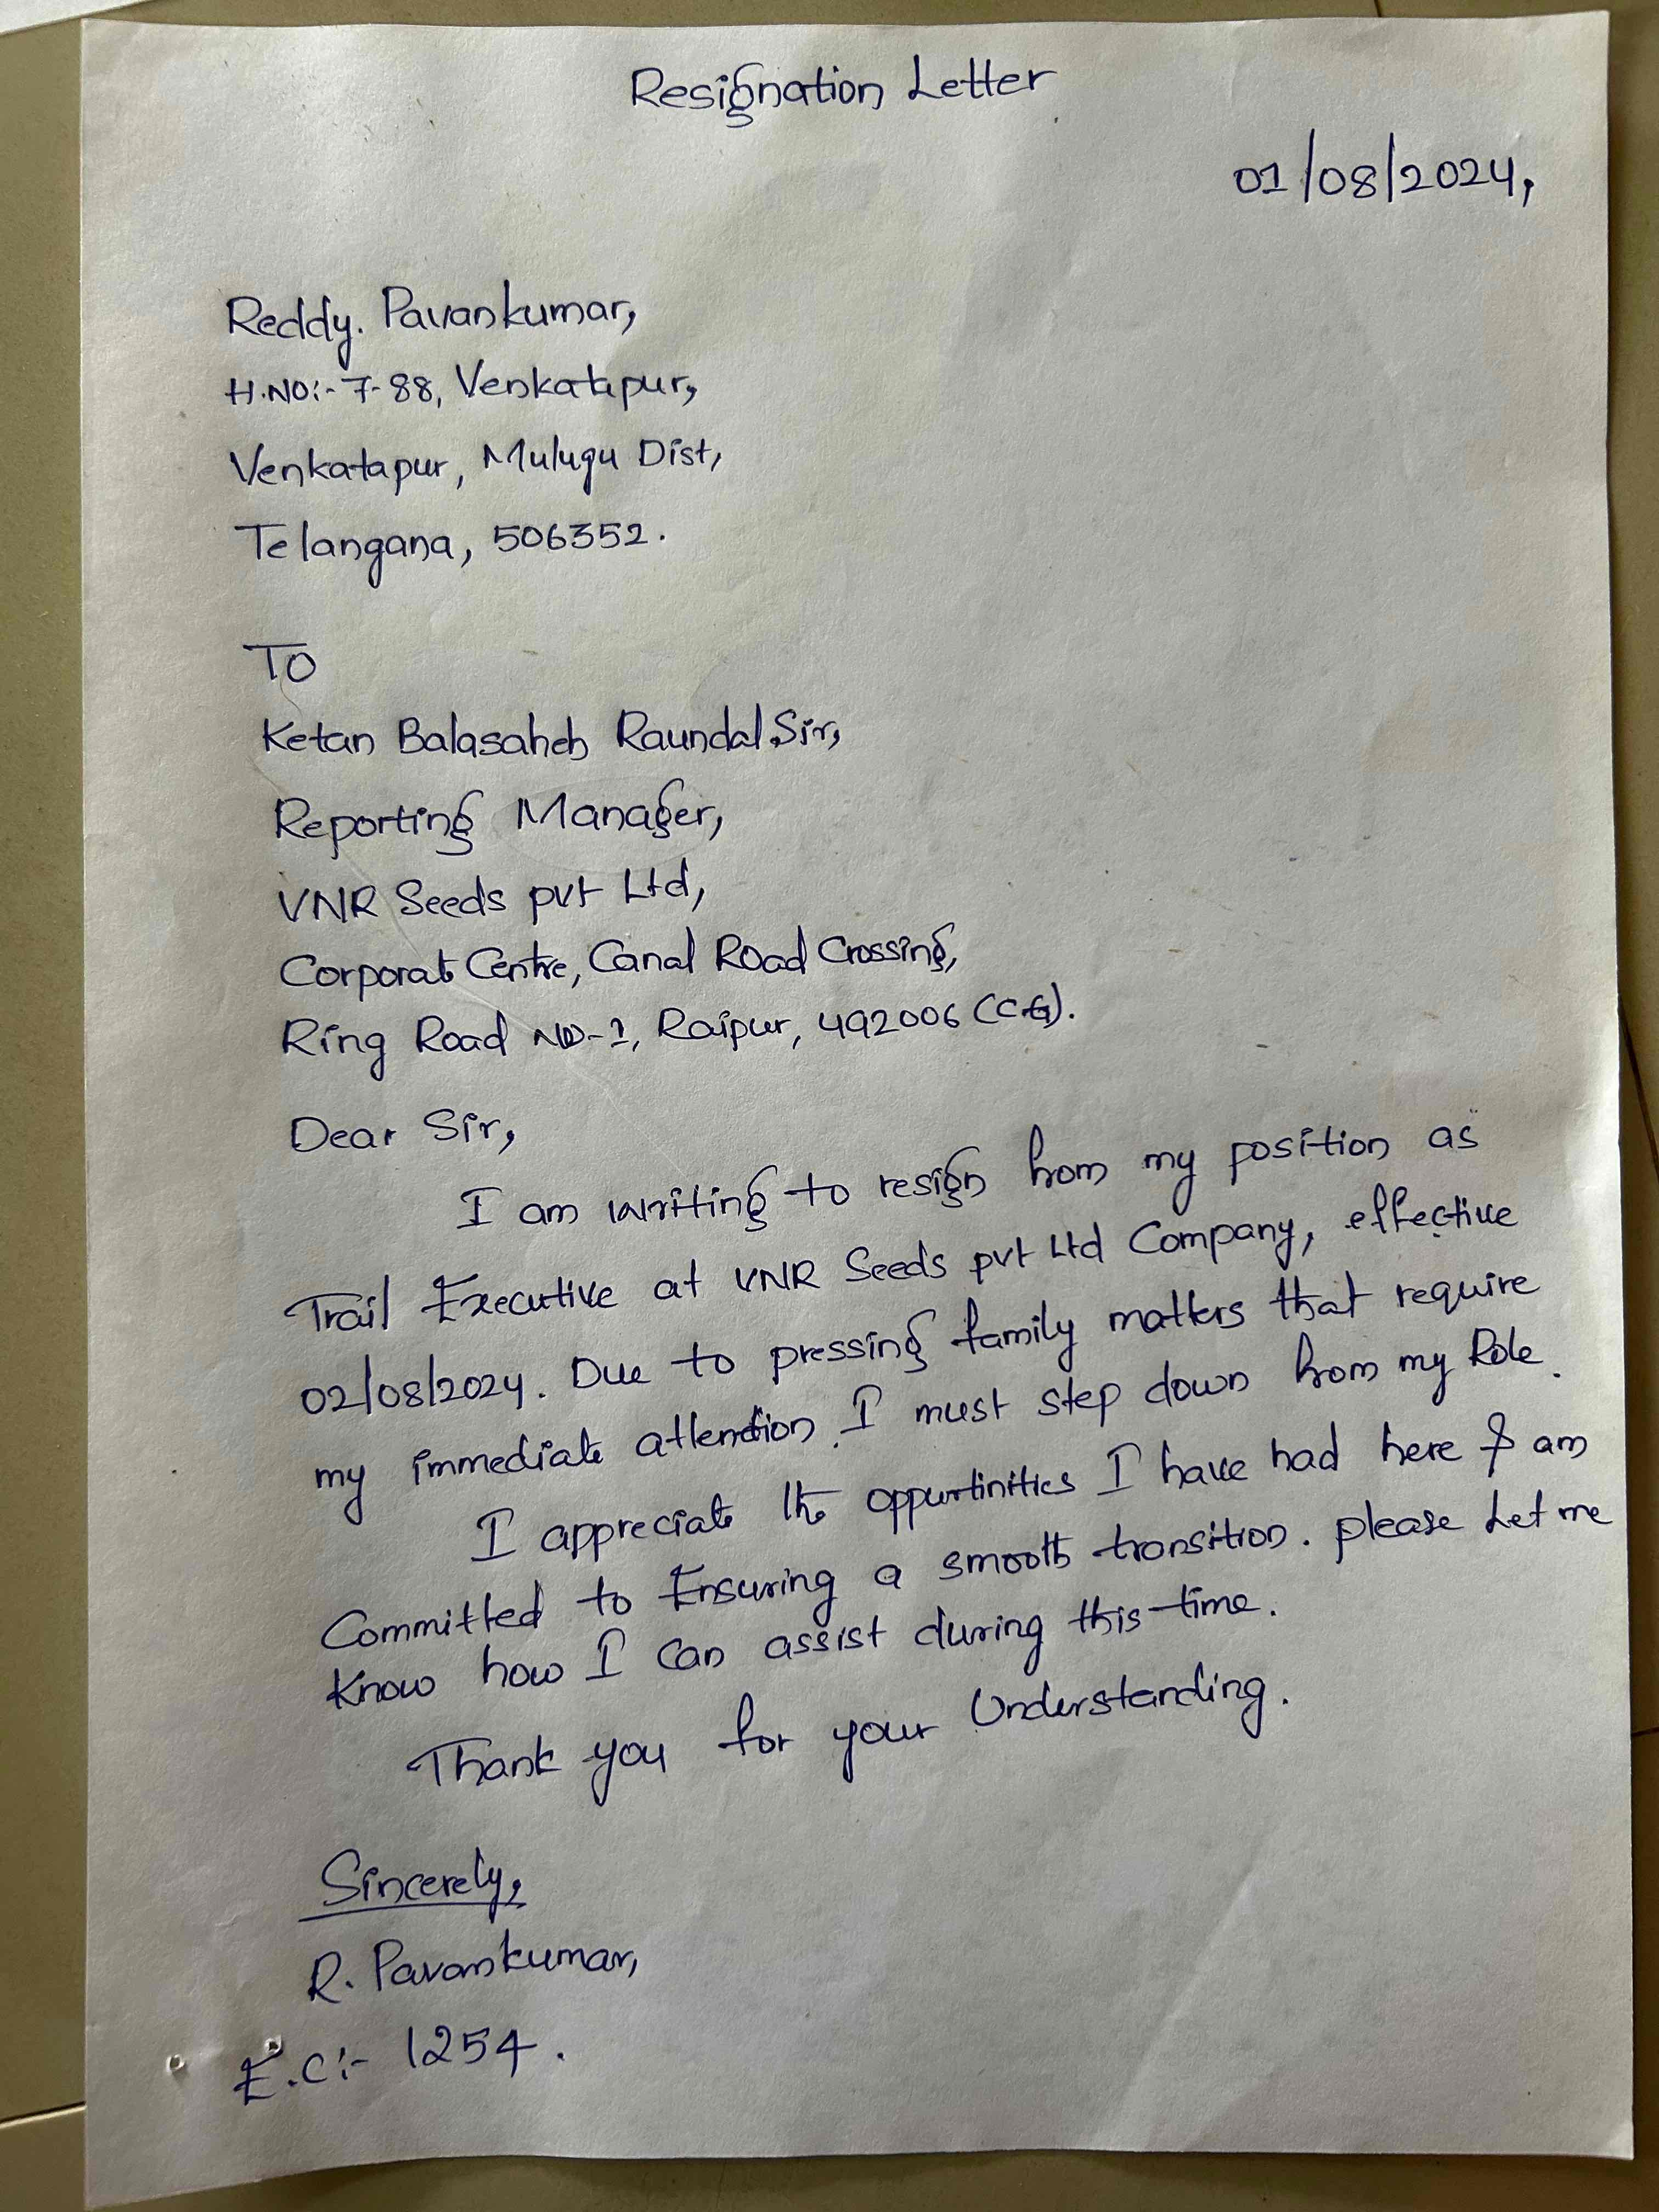 Resignation Letter
01/08/2024,
Reddy. Pavankumar,
H.NO:- 7-88, Venkatapur,
Venkatapur, Mulugu Dist,
Telangana, 506352.
TO
Ketan Balasaheb Raundal Sir,
Reporting Manager,
VNR Seeds pvt Ltd,
Corporate Centre, Canal Road Crossing,
Ring Road NO-1, Raipur, 492006 (C.G).
Dear Sir,
I am writing to resign from my position as
Trail Executive at VNR Seeds pvt Ltd Company, effective
02/08/2024. Due to pressing family matters that require
my immediate attention. I must step down from my Role.
I appreciate the oppurtinities I have had here & am
Committed to Ensuring a smooth transition. please Let me
Know how I Can assist during this time.
Thank you for your Understanding.
Sincerely,
R. Pavankumar,
E.C:- 1254.